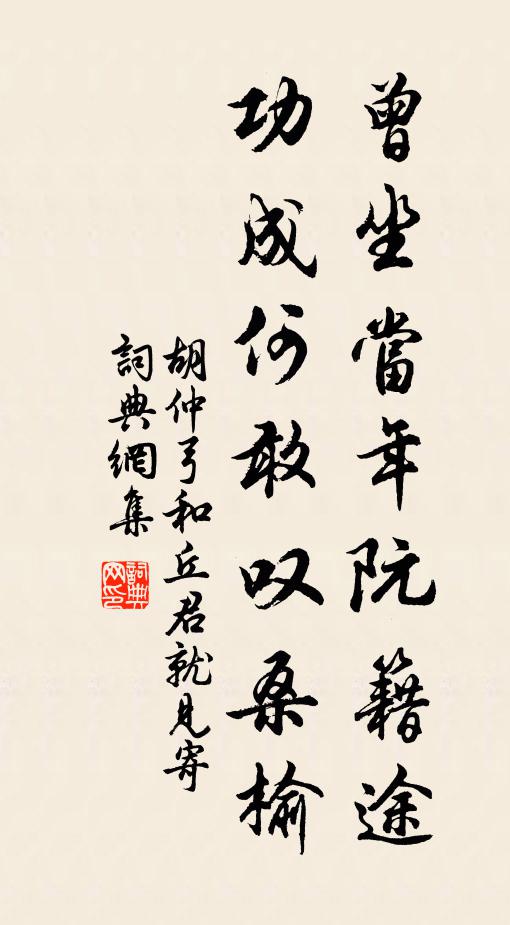 曾坐當年阮籍途
功成何敢叹桑榆
胡仲弓和丘君就見寄
詞典網集
詞典网印